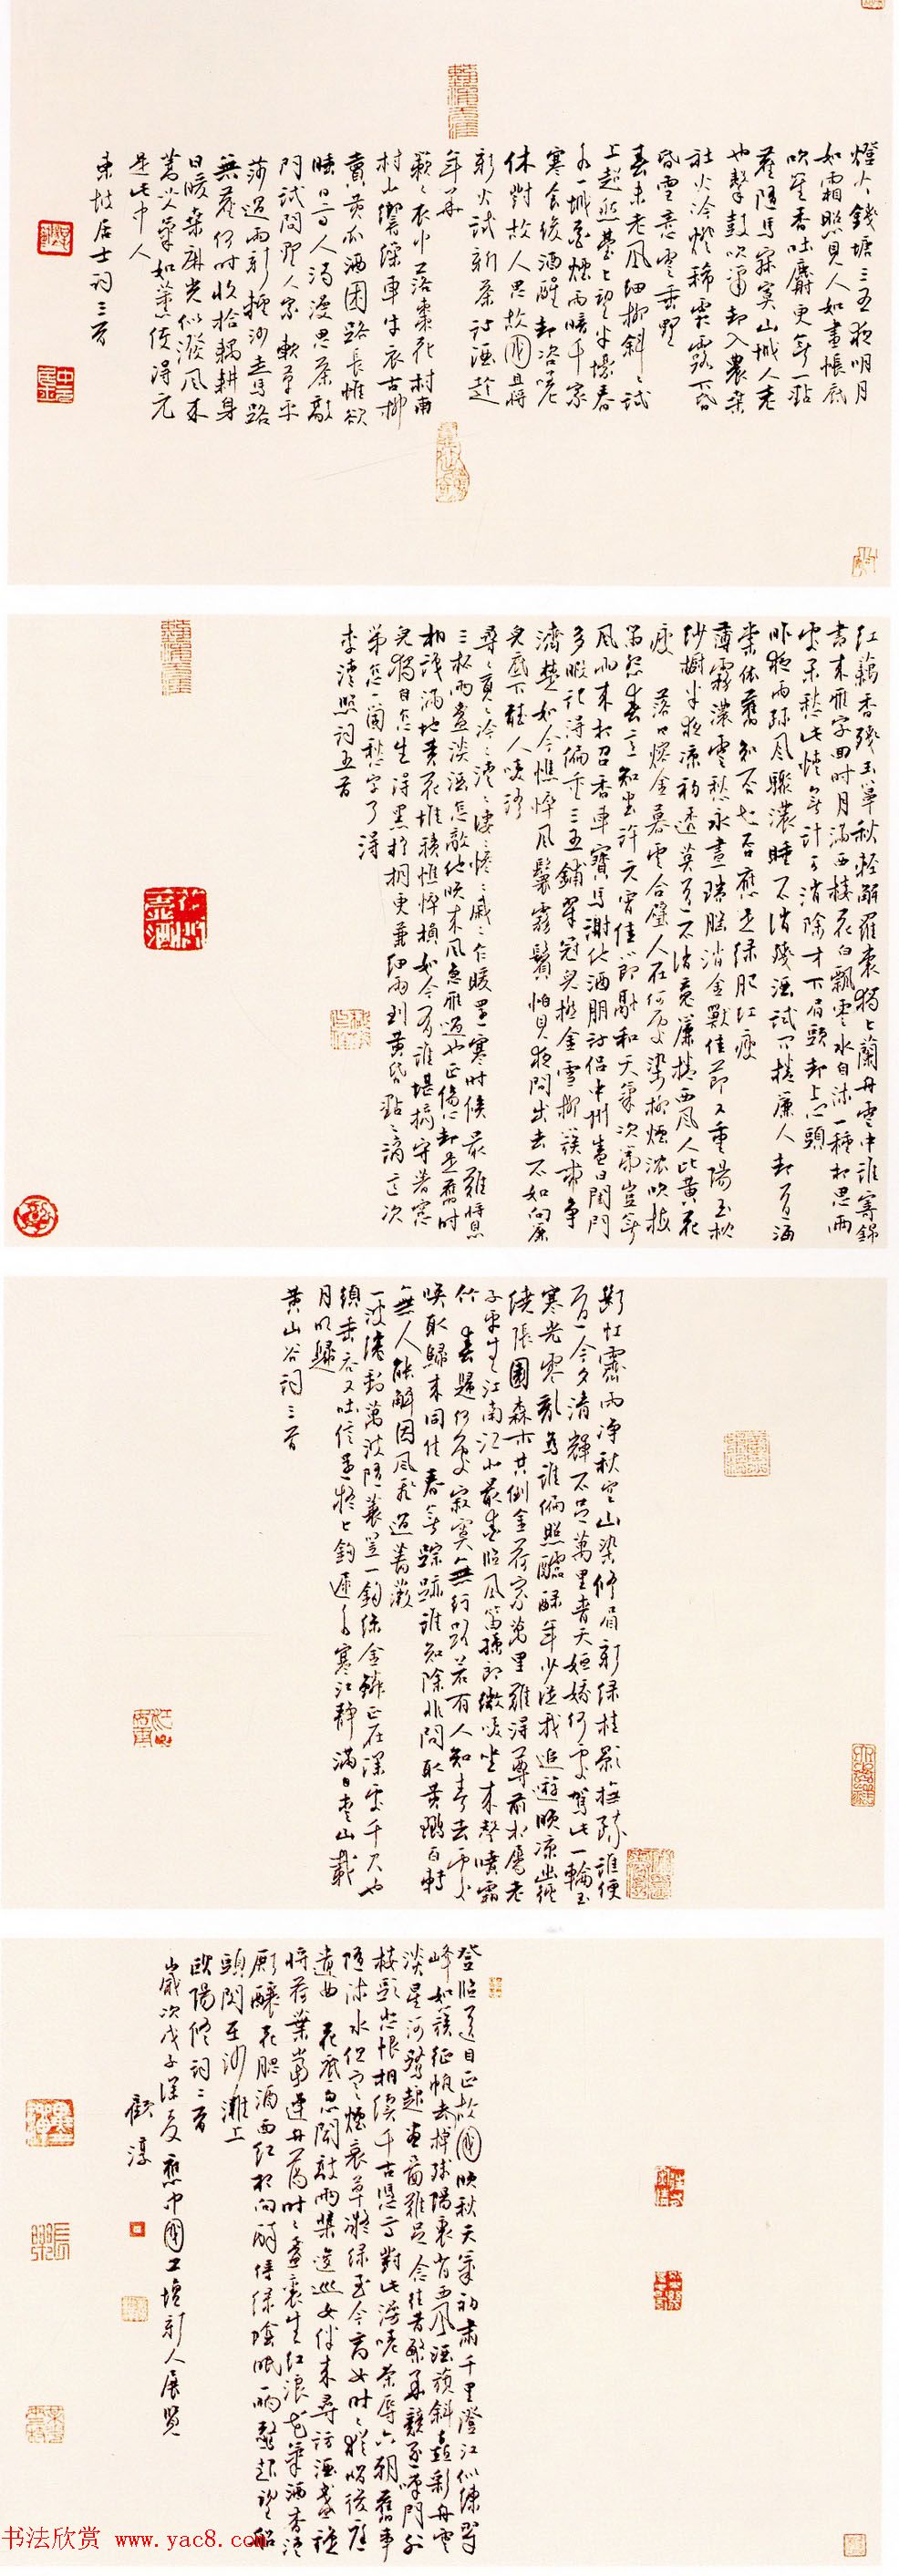 燈火錢塘三五夜明月
如霜照見人如畫帳底
吹笙香吐麝更無一點
塵隨馬寂寞山城人老
也擊鼓吹簫却入農桑
社火冷燈稀霜露下昏
昏雪意雲垂野
春未老風細柳斜斜試
上超然臺上望半壕春
水一城花煙雨暗千家
寒食後酒醒却咨嗟
休對故人思故國且將
新火試新茶詩酒趁
年華
簌簌衣巾落棗花村南
村北響繰車牛衣古柳
賣黃瓜酒困路長惟欲
睡日高人渴漫思茶敲
門試問野人家軟草平
莎過雨新輕沙走馬路
無塵何時收拾耦耕身
日暖桑麻光似潑風來
蒿艾氣如薰使君元
是此中人
東坡居士詞三首
紅藕香殘玉簟秋輕解羅裳獨上蘭舟雲中誰寄錦
書來雁字回時月滿西樓花自飄零水自流一種相思兩
處閑愁此情無計可消除才下眉頭却上心頭
昨夜雨疏風驟濃睡不消殘酒試問捲簾人却道海
棠依舊知否知否應是綠肥紅瘦
薄霧濃雲愁永晝瑞腦消金獸佳節又重陽玉枕
紗櫥半夜涼初透莫道不消魂簾捲西風人比黃花
瘦 落日熔金暮雲合璧人在何處染柳煙濃吹梅
笛怨春意知幾許元宵佳節融和天氣次第豈無
風雨來相召香車寶馬謝他酒朋詩侶中州盛日閨門
多暇記得偏重三五鋪翠冠兒撚金雪柳簇帶爭
濟楚如今憔悴風鬟霧鬢怕見夜間出去不如向簾
兒底下聽人笑語
尋尋覓覓冷冷清清淒淒慘慘戚戚乍暖還寒時候最難將息
三杯兩盞淡酒怎敵他晚來風急雁過也正傷心却是舊時
相識滿地黃花堆積憔悴損如今有誰堪摘守著窗
兒獨自怎生得黑梧桐更兼細雨到黃昏點點滴滴這次
第怎一個愁字了得
李清照詞五首
斷虹霽雨淨秋空山染修眉新綠桂影扶疏誰便
道今夕清輝不足萬里青天姮娥何處駕此一輪玉
寒光零亂為誰偏照醽醁年少從我追遊晚涼幽徑
繞張園森木共倒金荷家萬里難得尊前相屬老
子平生江南江北最愛臨風笛孫郎微笑坐來聲噴霜
竹 春歸何處寂寞無行路若有人知春去處
喚取歸來同住春無踪跡誰知除非問取黃鸝百囀
無人能解因風飛過薔薇
一波纔動萬波隨蓑笠一鉤絲金鱗正在深處千尺也
須垂吞又吐信還疑上鉤遲水寒江靜滿目青山載
月明歸
黃山谷詞三首
登臨送目正故國晚秋天氣初肅千里澄江似練翠
峰如簇征帆去棹殘陽裏背西風酒旗斜矗彩舟雲
淡星河鷺起畫圖難足念往昔繁華競逐嘆門外
樓頭悲恨相續千古憑高對此漫嗟榮辱六朝舊事
隨流水但寒煙衰草凝綠至今商女時時猶唱後庭
遺曲 花底忽聞敲兩槳逡巡女伴來尋訪酒盞旋
將荷葉當蓮舟蕩時時盞裏生紅浪花氣酒香清
廝釀花腮酒面紅相向醉倚綠陰眠一晌驚起望船
頭閣在沙灘上
歐陽修詞二首
歲次戊子深夏應中國書壇新人展覽
顧淳
书法欣赏 www.yac8.com